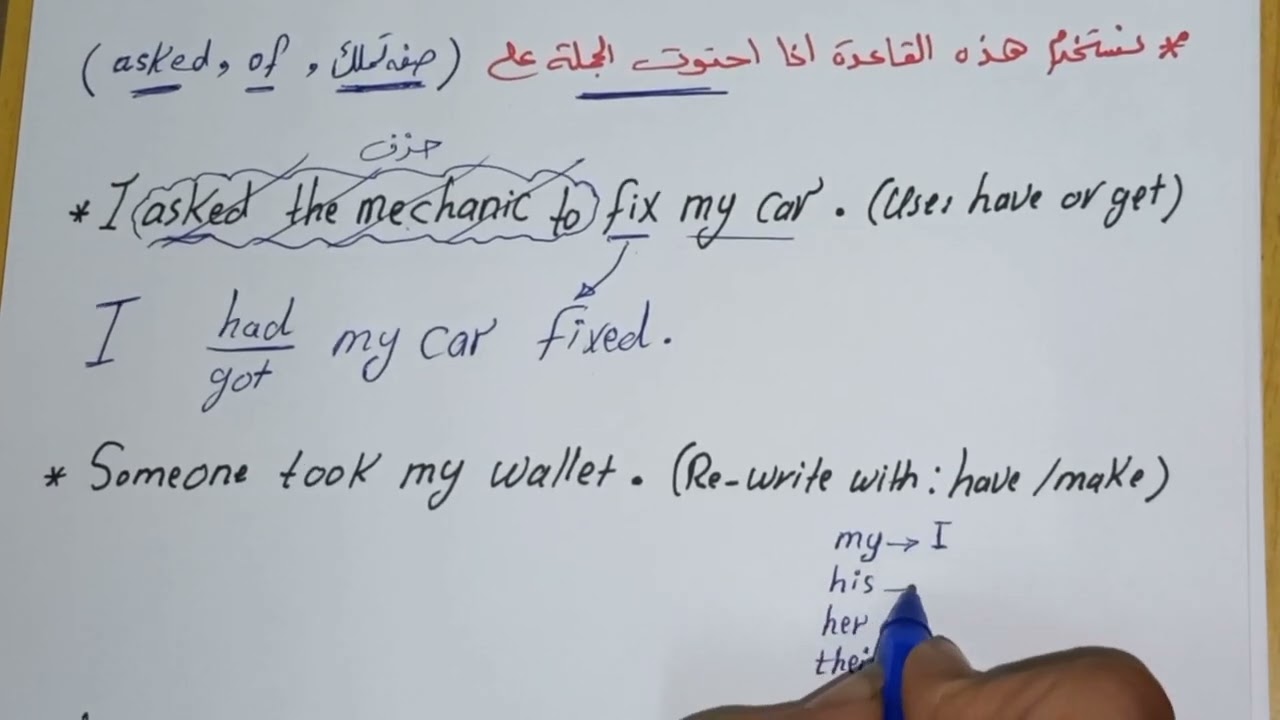 * نستخدم هذه القاعدة اذا احتوت الجملة على (صفة تملك , of , asked)
حذف
* I asked the mechanic to fix my car. (Use: have or get)
I had my car fixed.
got
* Someone took my wallet. (Re-write with: have /make)
my → I
his
her